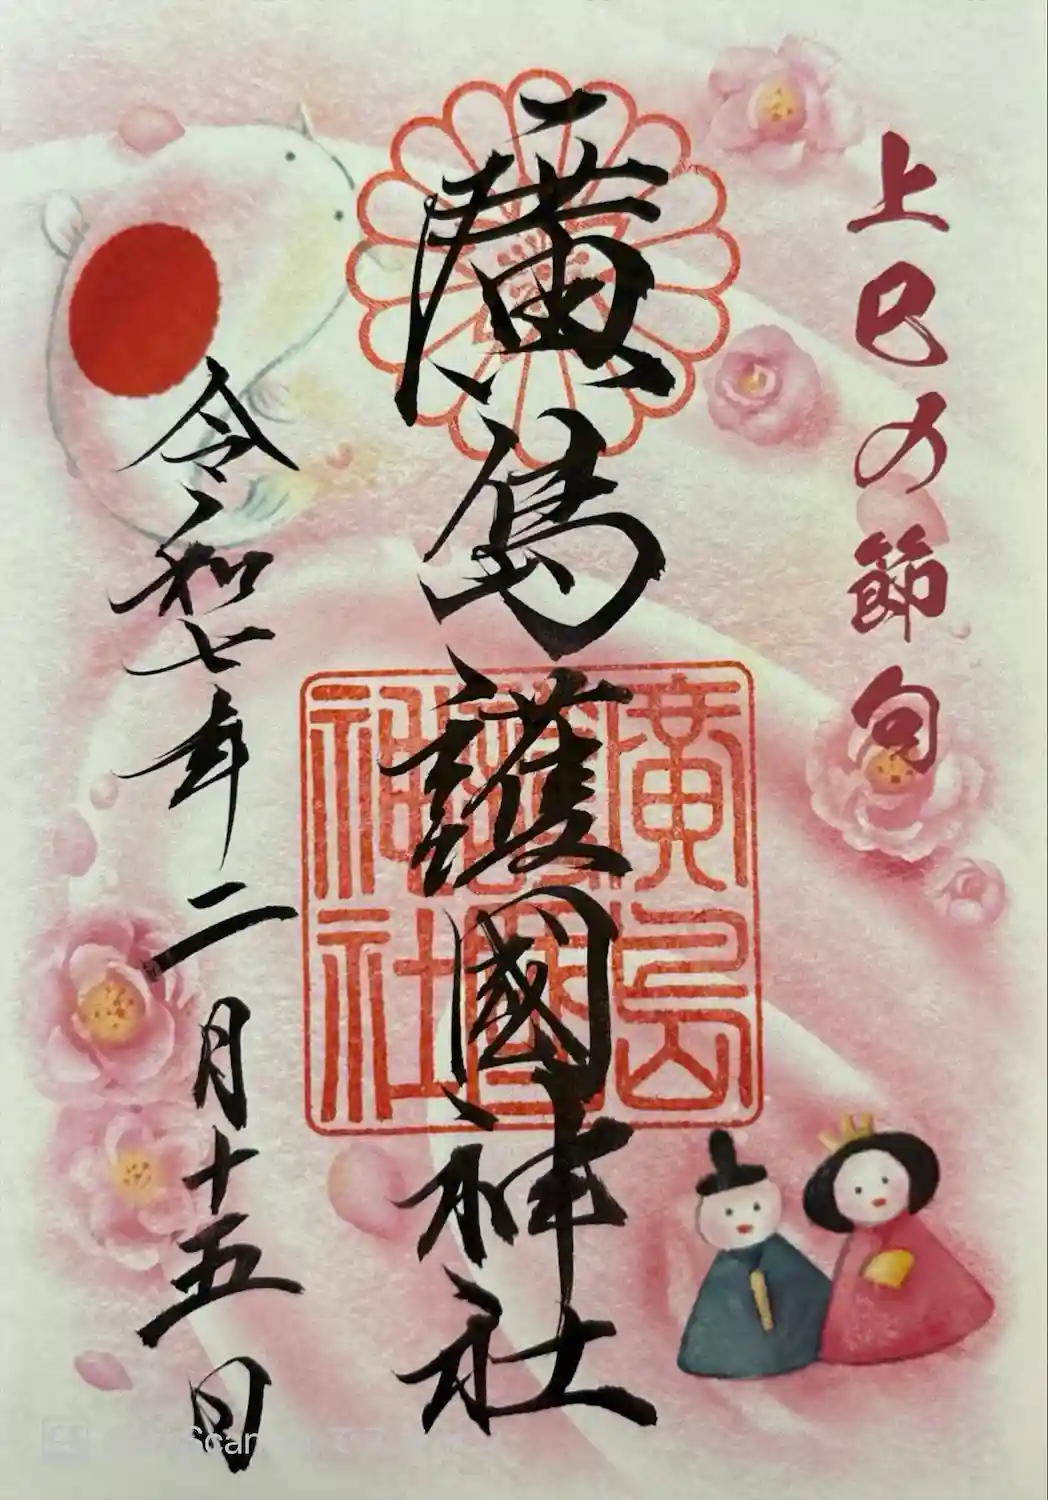 上巳の節句
廣島護國神社
廣島
護國
神社
令和七年二月十五日